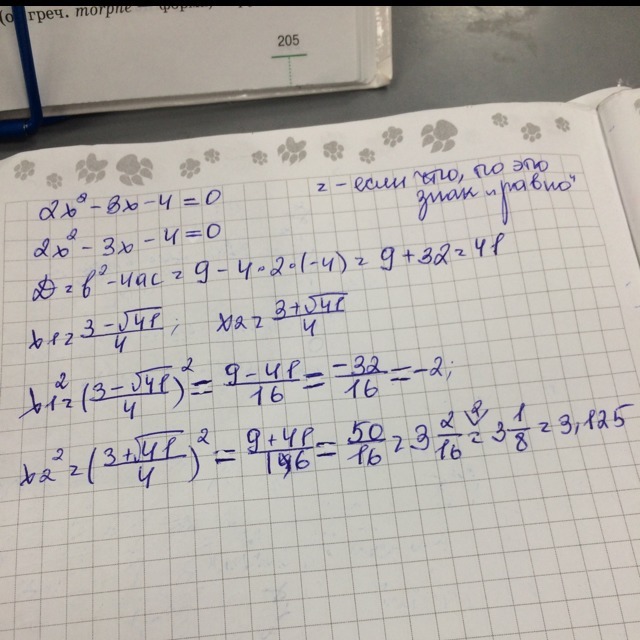 (от греч. morphe — форма,
205
2x² - 3x - 4 = 0
= - если что, то это
знак "равно"
2x² - 3x - 4 = 0
D = b² - 4ac = 9 - 4 · 2 · (-4) = 9 + 32 = 41
x1 = (3 - √41)/4 ; x2 = (3 + √41)/4
x1² = ((3 - √41)/4)² = (9 - 41)/16 = -32/16 = -2;
x2² = ((3 + √41)/4)² = (9 + 41)/16 = 50/16 = 3 2/16 = 3 1/8 = 3,125